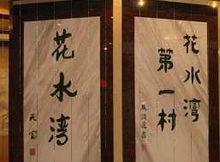 花水湾
第一村
花水湾